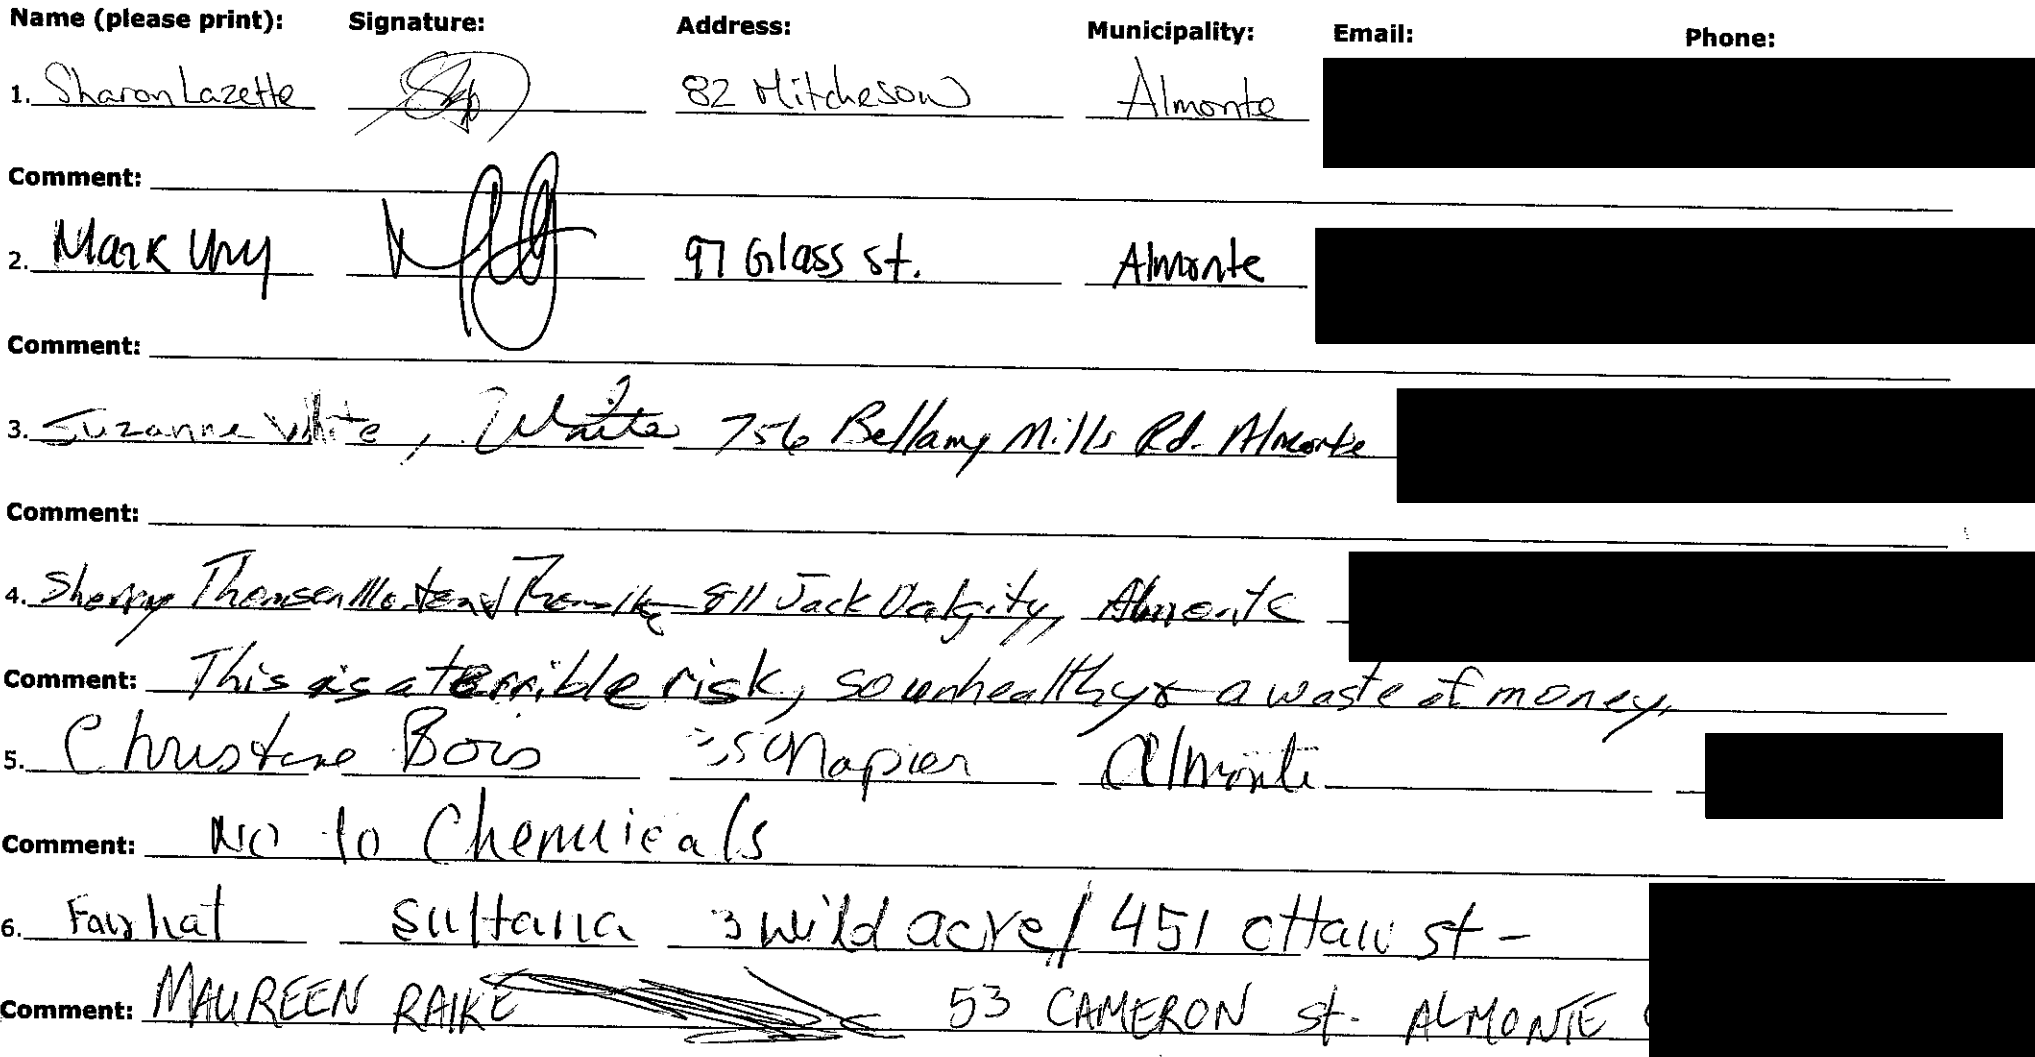 Name (please print): Signature: Address: Municipality: Email: Phone:
1. Sharon Lazette 82 Mitcheson Almonte
Comment:
2. Mark Ury 97 Glass St. Almonte
Comment:
3. Suzanne White, White 756 Bellamy Mills Rd. Almonte
Comment:
4. Sherry 811 Jack Dalgity, Almonte
Comment: This is a terrible risk, so unhealthy & a waste of money.
5. Christine Bois Napier Almonte
Comment: No to Chemicals
6. Farhat Sultana 3 wild acre / 451 ottaw st -
Comment: MAUREEN RAIKE 53 CAMERON St. ALMONTE